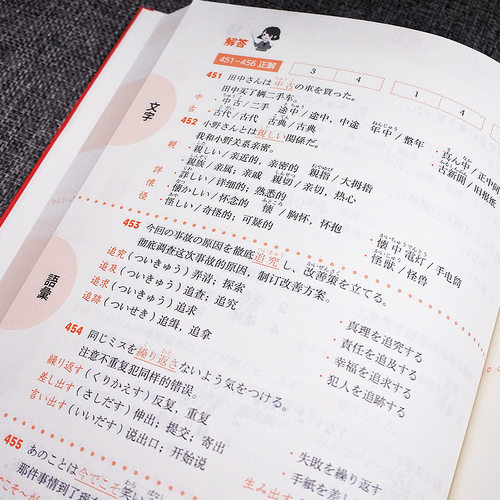 解答
451-456 正解
3
4
1
4
文字
451 田中さんは中古の車を買った。
田中买了辆二手车。
中 ・中古/二手 途中/途中,中途 年中/整年 ・真ん中/正中间
古 ・古代/古代 古典/古典 ・古新聞/旧报纸
452 小野さんとは親しい間係だ。
我和小野关系亲密。
親 ・親しい/亲近的,亲密的 親指/大拇指
・親族/亲属;亲戚 親切/亲切,热心
詳 ・詳しい/详细的;熟悉的
懐 ・懐かしい/怀念的 懐/胸怀,怀抱 ・懐中電灯/手电筒
怪 ・怪しい/奇怪的;可疑的 ・怪獣/怪兽
語彙
453 今回の事故の原因を徹底追究し、改善策を立てる。
彻底调查这次事故的原因,制订改善方案。
追究(ついきゅう)弄清;探索 ・真理を追究する
追及(ついきゅう)追查;追究 ・責任を追及する
追求(ついきゅう)追求 ・幸福を追求する
追跡(ついせき)追缉,追拿 ・犯人を追跡する
454 同じミスを繰り返さないよう気をつける。
注意不重复犯同样的错误。
繰り返す(くりかえす)反复,重复 ・失敗を繰り返す
差し出す(さしだす)伸出;提交;寄出 ・手紙を差し
言い出す(いいだす)说出口;开始说
455 あのことは今でこそ笑い
生み出す
那件事情到了现在